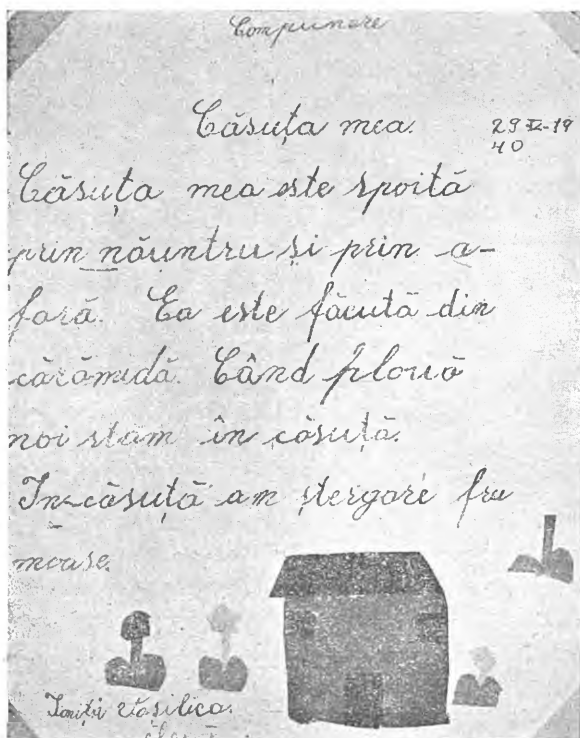 Compunere
Căsuța mea.
29 IX-19
40
Căsuța mea este spoită
prin năuntru și prin a-
fară. Ea este făcută din
cărămidă. Când plouă
noi stăm în căsuță.
In căsuță am ștergare fru
moase.
Vasilica.